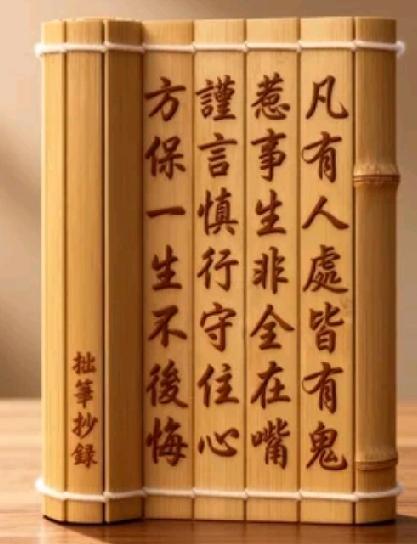 凡有人處皆有鬼
惹事生非全在嘴
謹言慎行守住心
方保一生不後悔
拙筆抄錄